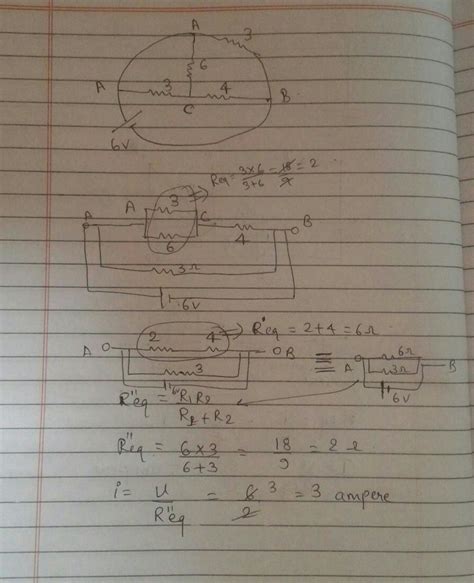 A
3
6
A 3 4 B
C
6V
Req = 3×6/3+6 = 18/9 = 2
A 3 C B
A
6 4
3Ω
6V
2 4 → R'eq = 2+4 = 6Ω
A B ≡ A 6Ω B
3 3Ω
6V 6V
R"eq = R1R2/R1+R2
R"eq = 6×3/6+3 = 18/9 = 2Ω
i = V/R"eq = 6/2 3 = 3 ampere